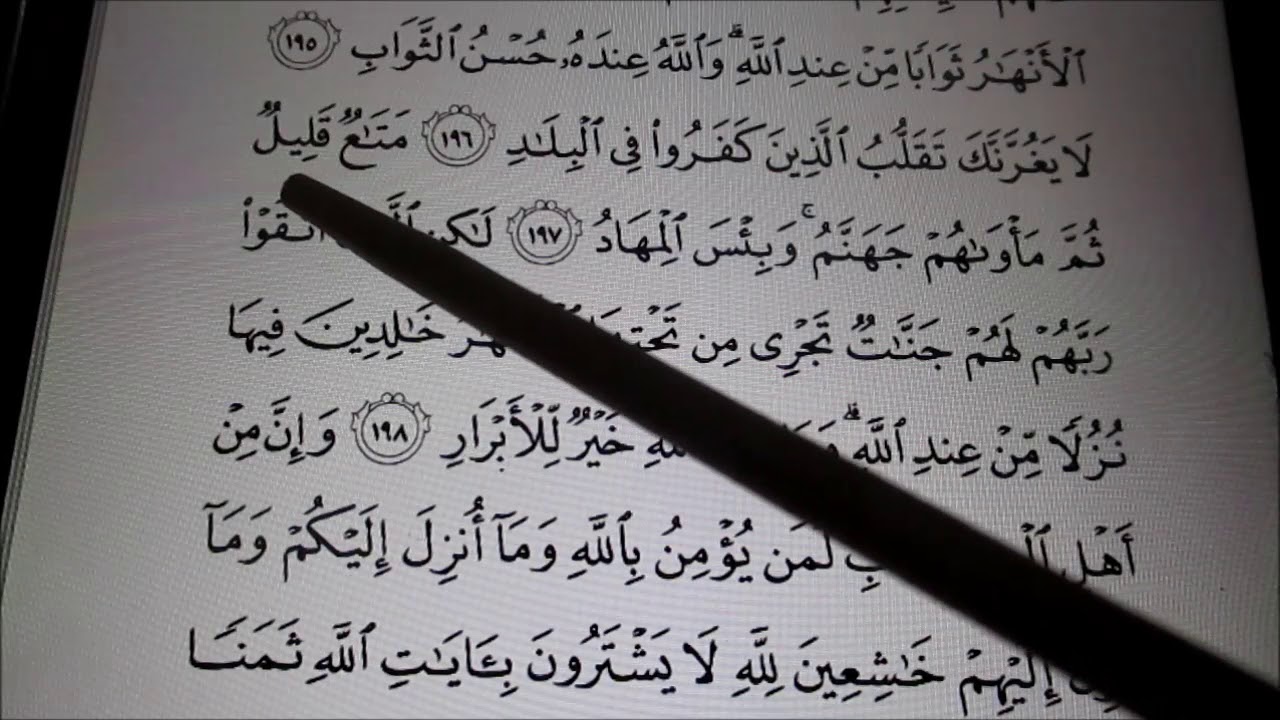 ٱلۡأَنۡهَٰرُ ثَوَابٗا مِّنۡ عِندِ ٱللَّهِۗ وَٱللَّهُ عِندَهُۥ حُسۡنُ ٱلثَّوَابِ ١٩٥
لَا يَغُرَّنَّكَ تَقَلُّبُ ٱلَّذِينَ كَفَرُواْ فِي ٱلۡبِلَٰدِ ١٩٦ مَتَٰعٞ قَلِيلٞ
ثُمَّ مَأۡوَىٰهُمۡ جَهَنَّمُۚ وَبِئۡسَ ٱلۡمِهَادُ ١٩٧ لَٰكِنِ ٱتَّقَوۡاْ
رَبَّهُمۡ لَهُمۡ جَنَّٰتٞ تَجۡرِي مِن خَٰلِدِينَ فِيهَا
نُزُلٗا مِّنۡ عِندِ ٱللَّهِۗ خَيۡرٞ لِّلۡأَبۡرَارِ ١٩٨ وَإِنَّ مِنۡ
أَهۡلِ لَمَن يُؤۡمِنُ بِٱللَّهِ وَمَآ أُنزِلَ إِلَيۡكُمۡ وَمَآ
إِلَيۡهِمۡ خَٰشِعِينَ لِلَّهِ لَا يَشۡتَرُونَ بِـَٔايَٰتِ ٱللَّهِ ثَمَنٗا